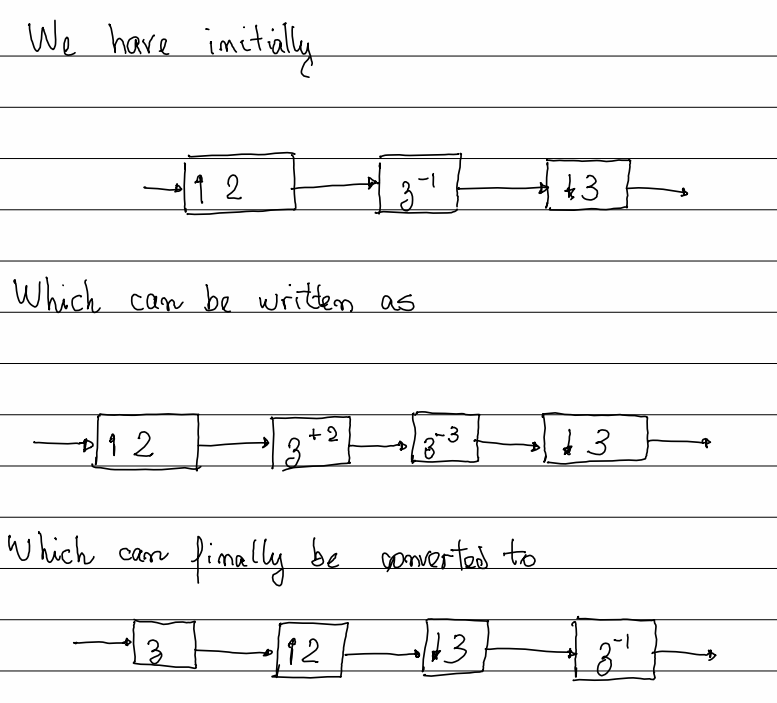 We have initially
↑ 2 z⁻¹ ↓3
Which can be written as
↑ 2 z⁺² z⁻³ ↓ 3
Which can finally be converted to
z ↑2 ↓3 z⁻¹